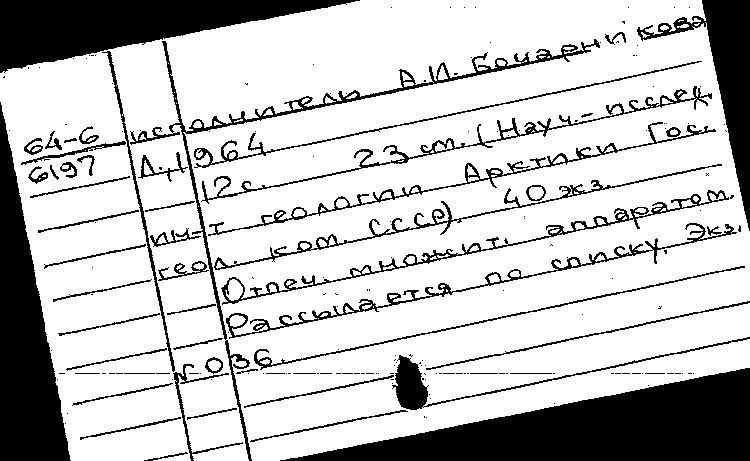 исполнитель А.И. Бочарникова
64-6
6197
Л., 1964.
12 с. 23 см. (Науч.-исслед.
ин-т геологии Арктики Гос.
геол. ком. СССР). 40 экз.
Отпеч. множит. аппаратом.
Рассылается по списку. Экз.
№ 036.